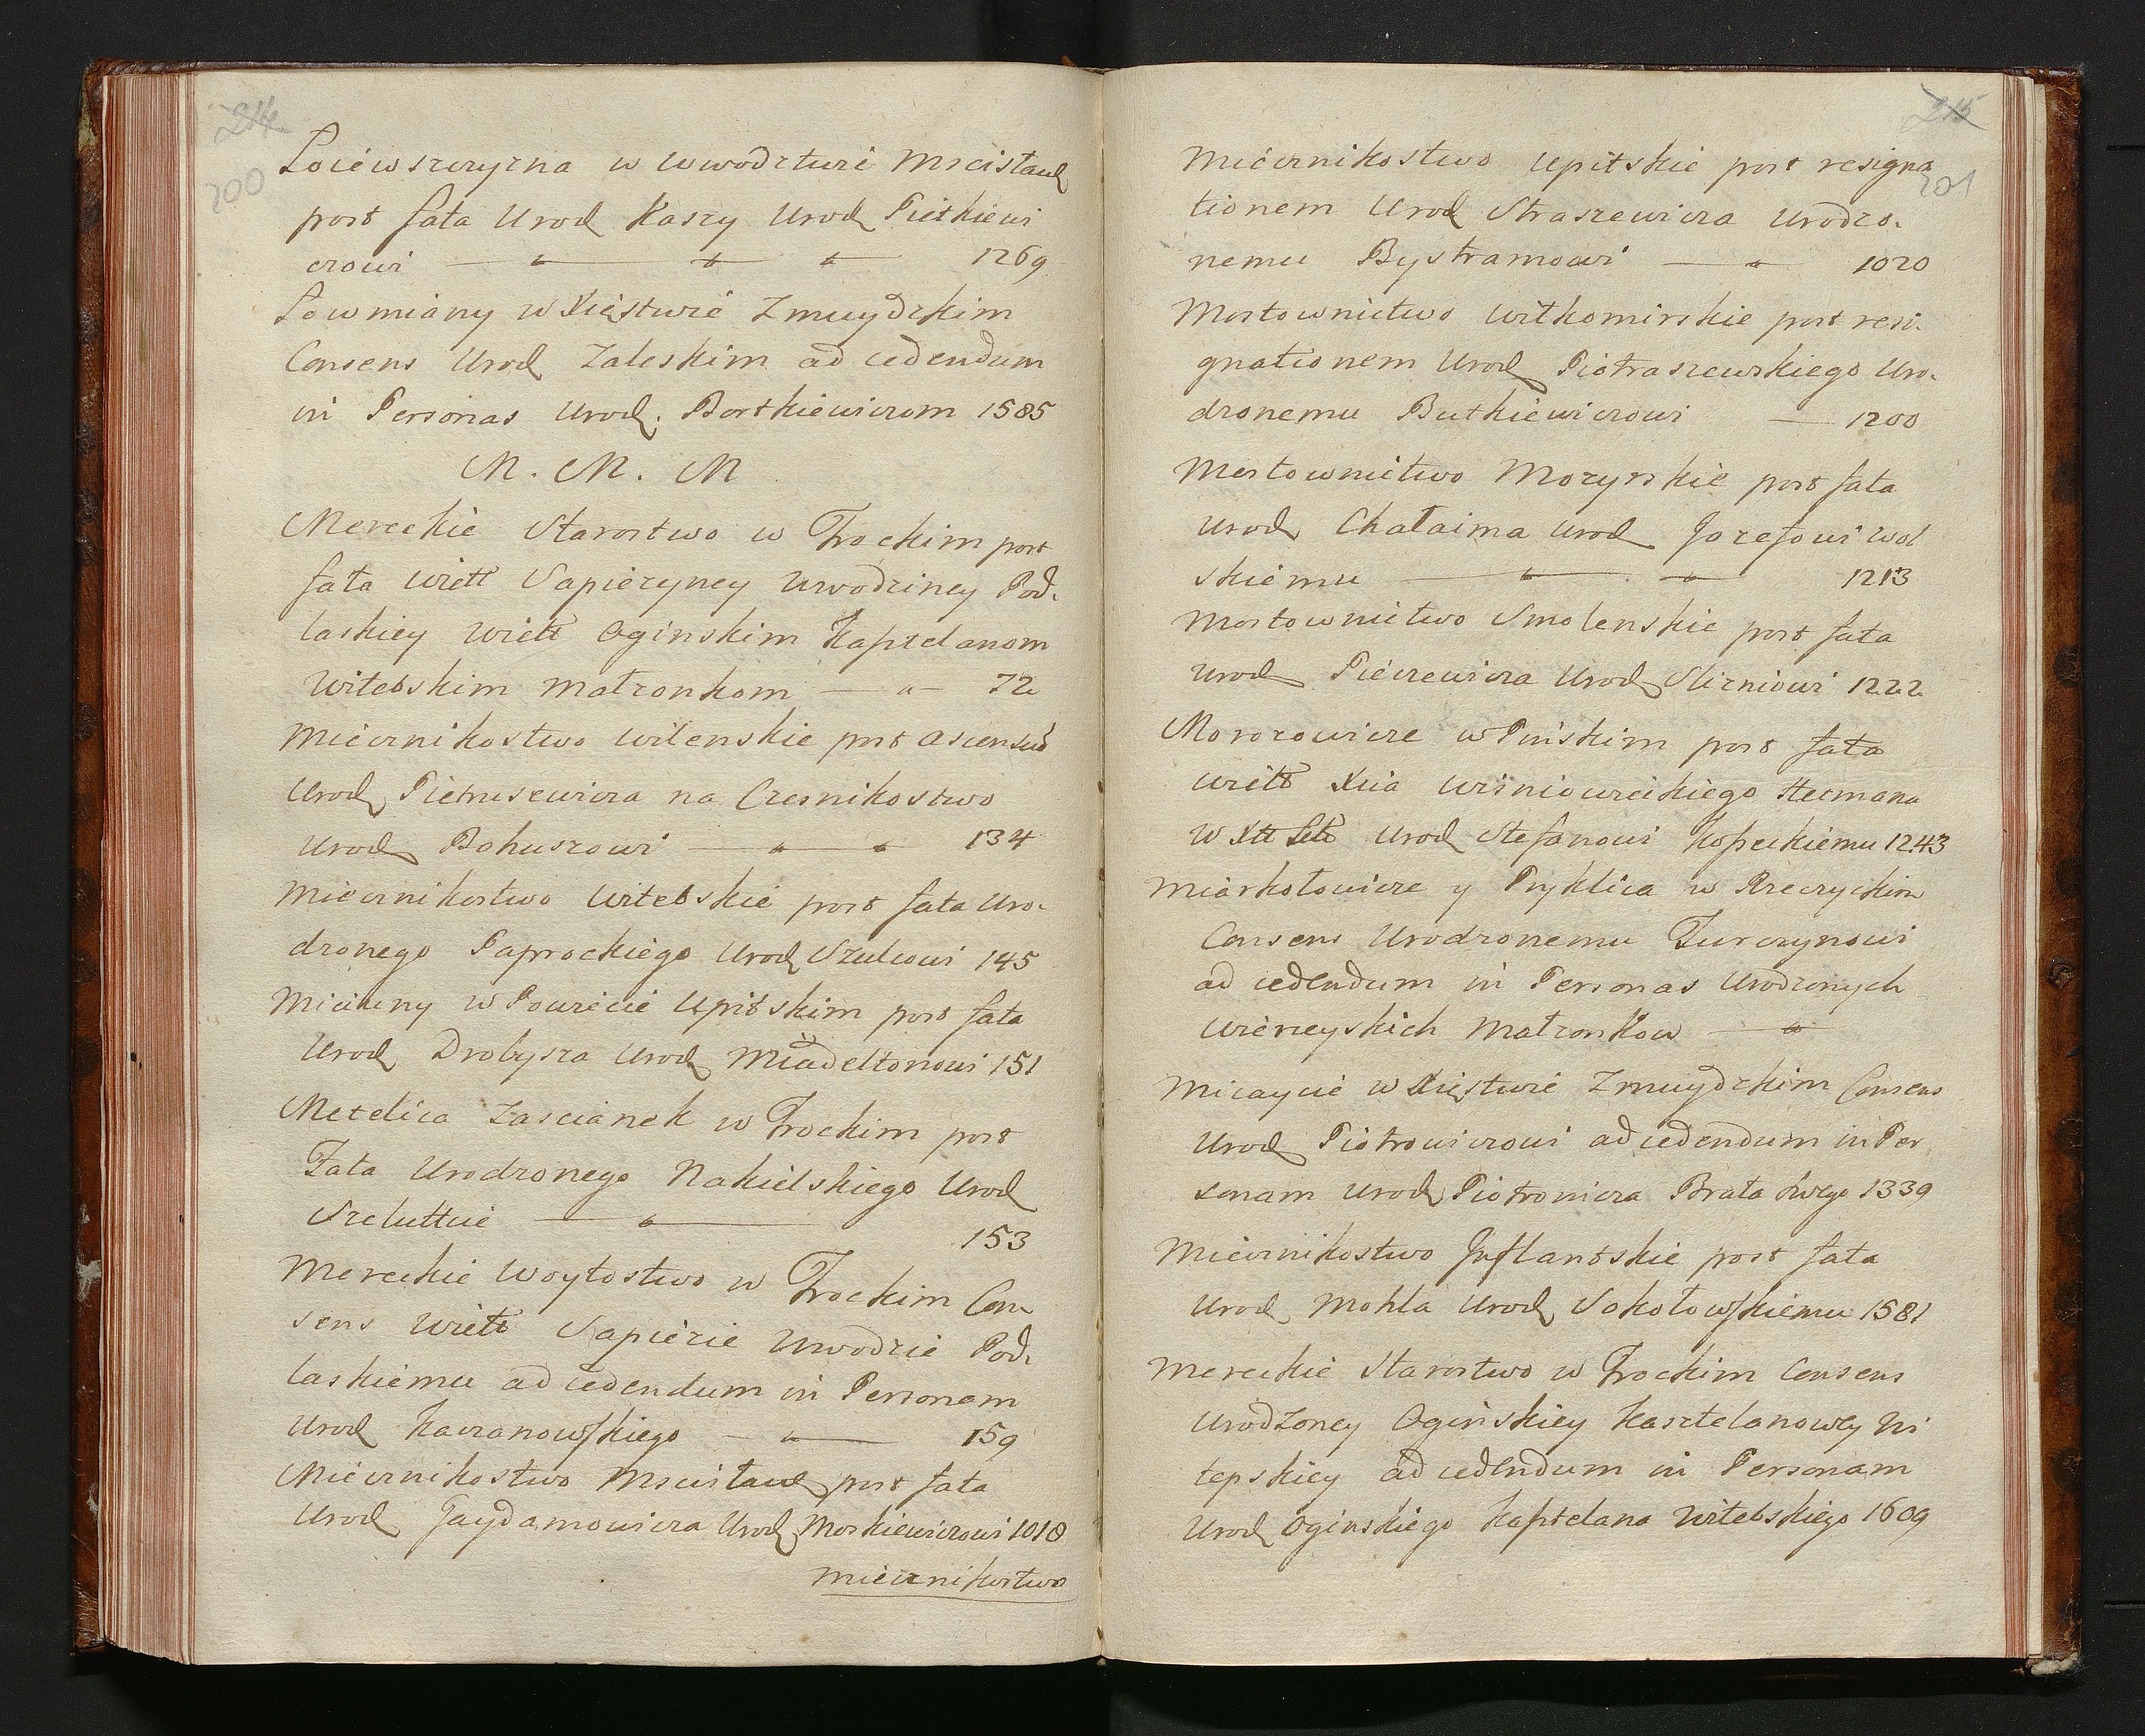 214
200
Łoiewszczyzna w Wwodztwie Mscisławl
post fata Urod Kaszy Urod Pietkiewi
czowi 1269
Łowmiany w Xięstwie Zmuydzkim
Consens Urod Zaleskim ad cedendum
in Personas Urod. Bortkiewiczom 1585
M. M. M
Mereckie Starostwo w Trockim post
fata Wiell Sapiezyney Wwodziney Pod.
laskiey Wiell Oginskim Kasztelanom
Witebskim Małzonkom 72
Miecznikostwo Wilenskie post ascensum
Urod Pietrusewicza na Czesnikostwo
Urod Bohuszowi 134
Miecznikostwo Witebskie post fata Uro.
dzonego Paprockiego Urod Szulcowi 145
Miciuny w Powiecie Upitskim post fata
Urod Drobysza Urod Miadeltonowi 151
Metelica Zascianek w Trockim post
Fata Urodzonego Nakielskiego Urod
Szeluttcie 153
Mereckie Woytostwo w Trockim Con
sens Wiell Sapiezie Wwodzie Pod.
laskiemu ad cedendum in Personam
Urod Kaczanowskiego 159
Miecznikostwo Mscisławl post fata
Urod Jaydamowicza Urod Moskiewiczowi 1018
Miecznikostwo
215
201
Miecznikostwo Upitskie post resigna
tionem Urod Straszewicza Urodzo.
nemu Bystramowi 1020
Mostownictwo Wiłkomirskie post resi.
gnationem Urod Piotraszewskiego Uro.
dzonemu Butkiewiczowi 1200
Mostownictwo Mozyrskie post fata
Urod Chałaima Urod Jozefowi Wol
skiemu 1213
Mostownictwo Smolenskie post fata
Urod Pieczewicza Urod Slizniowi 1222
Morozowicze w Pinskim post fata
Wiell Xcia Wisniowieckiego Hetmana
W Xtt Litt Urod Stefanowi Kopeckiemu 1243
Miarkołowicze y Pryklica w Rzeczyckim
Consens Urodzonemu Turczynowi
ad cedendum in Personas Urodzonych
Wierzeyskich Małzonkow
Micaycie w Xięstwie Zmuydzkim Consens
Urod Piotrowiczowi ad cedendum in Per
sonam Urod Piotrowicza Brata Swego 1339
Miecznikostwo Inflantskie post fata
Urod Mohla Urod Sokołowskiemu 1581
Mereckie Starostwo w Trockim Consens
Urodzoney Oginskiey Kasztelanowey Wi
tepskiey ad cedendum in Personam
Urod Oginskiego Kasztelana Witebskiego 1609